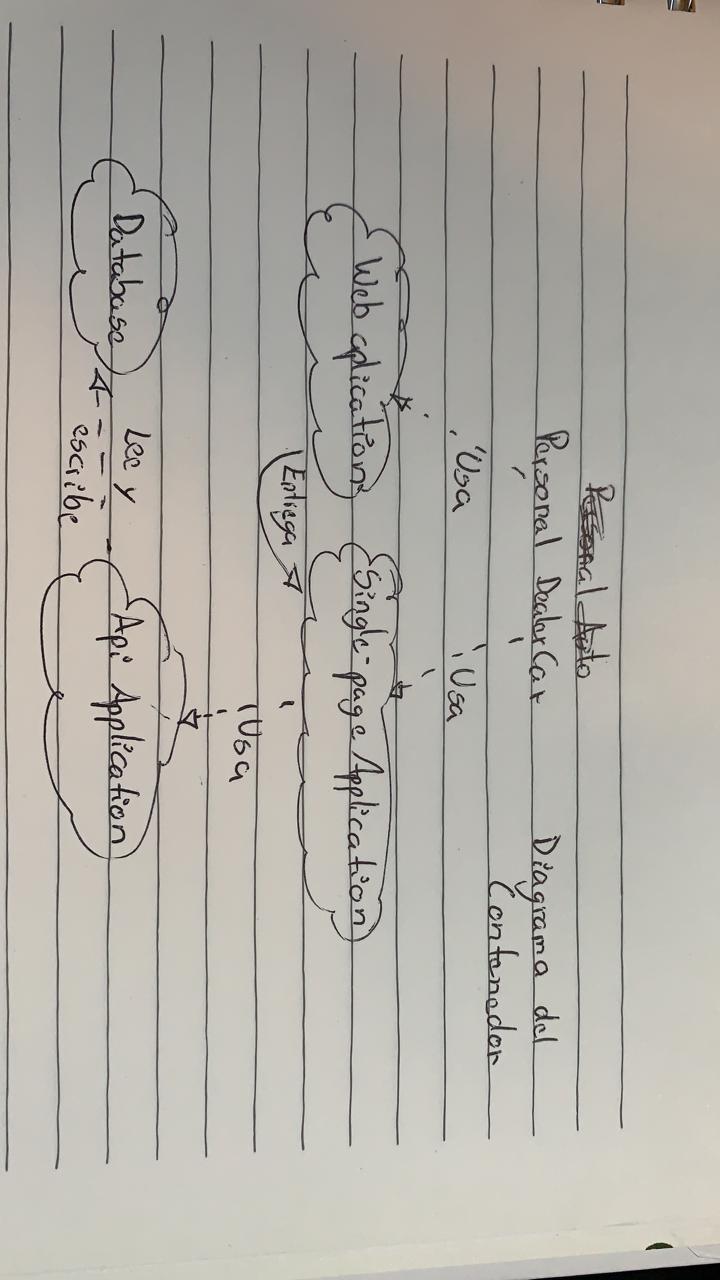 Personal Auto
Personal DealerCar
Diagrama del
Contenedor
Usa
Usa
Web aplication
Single-page Application
Entrega
Usa
Database
Lee y
escribe
Api Application